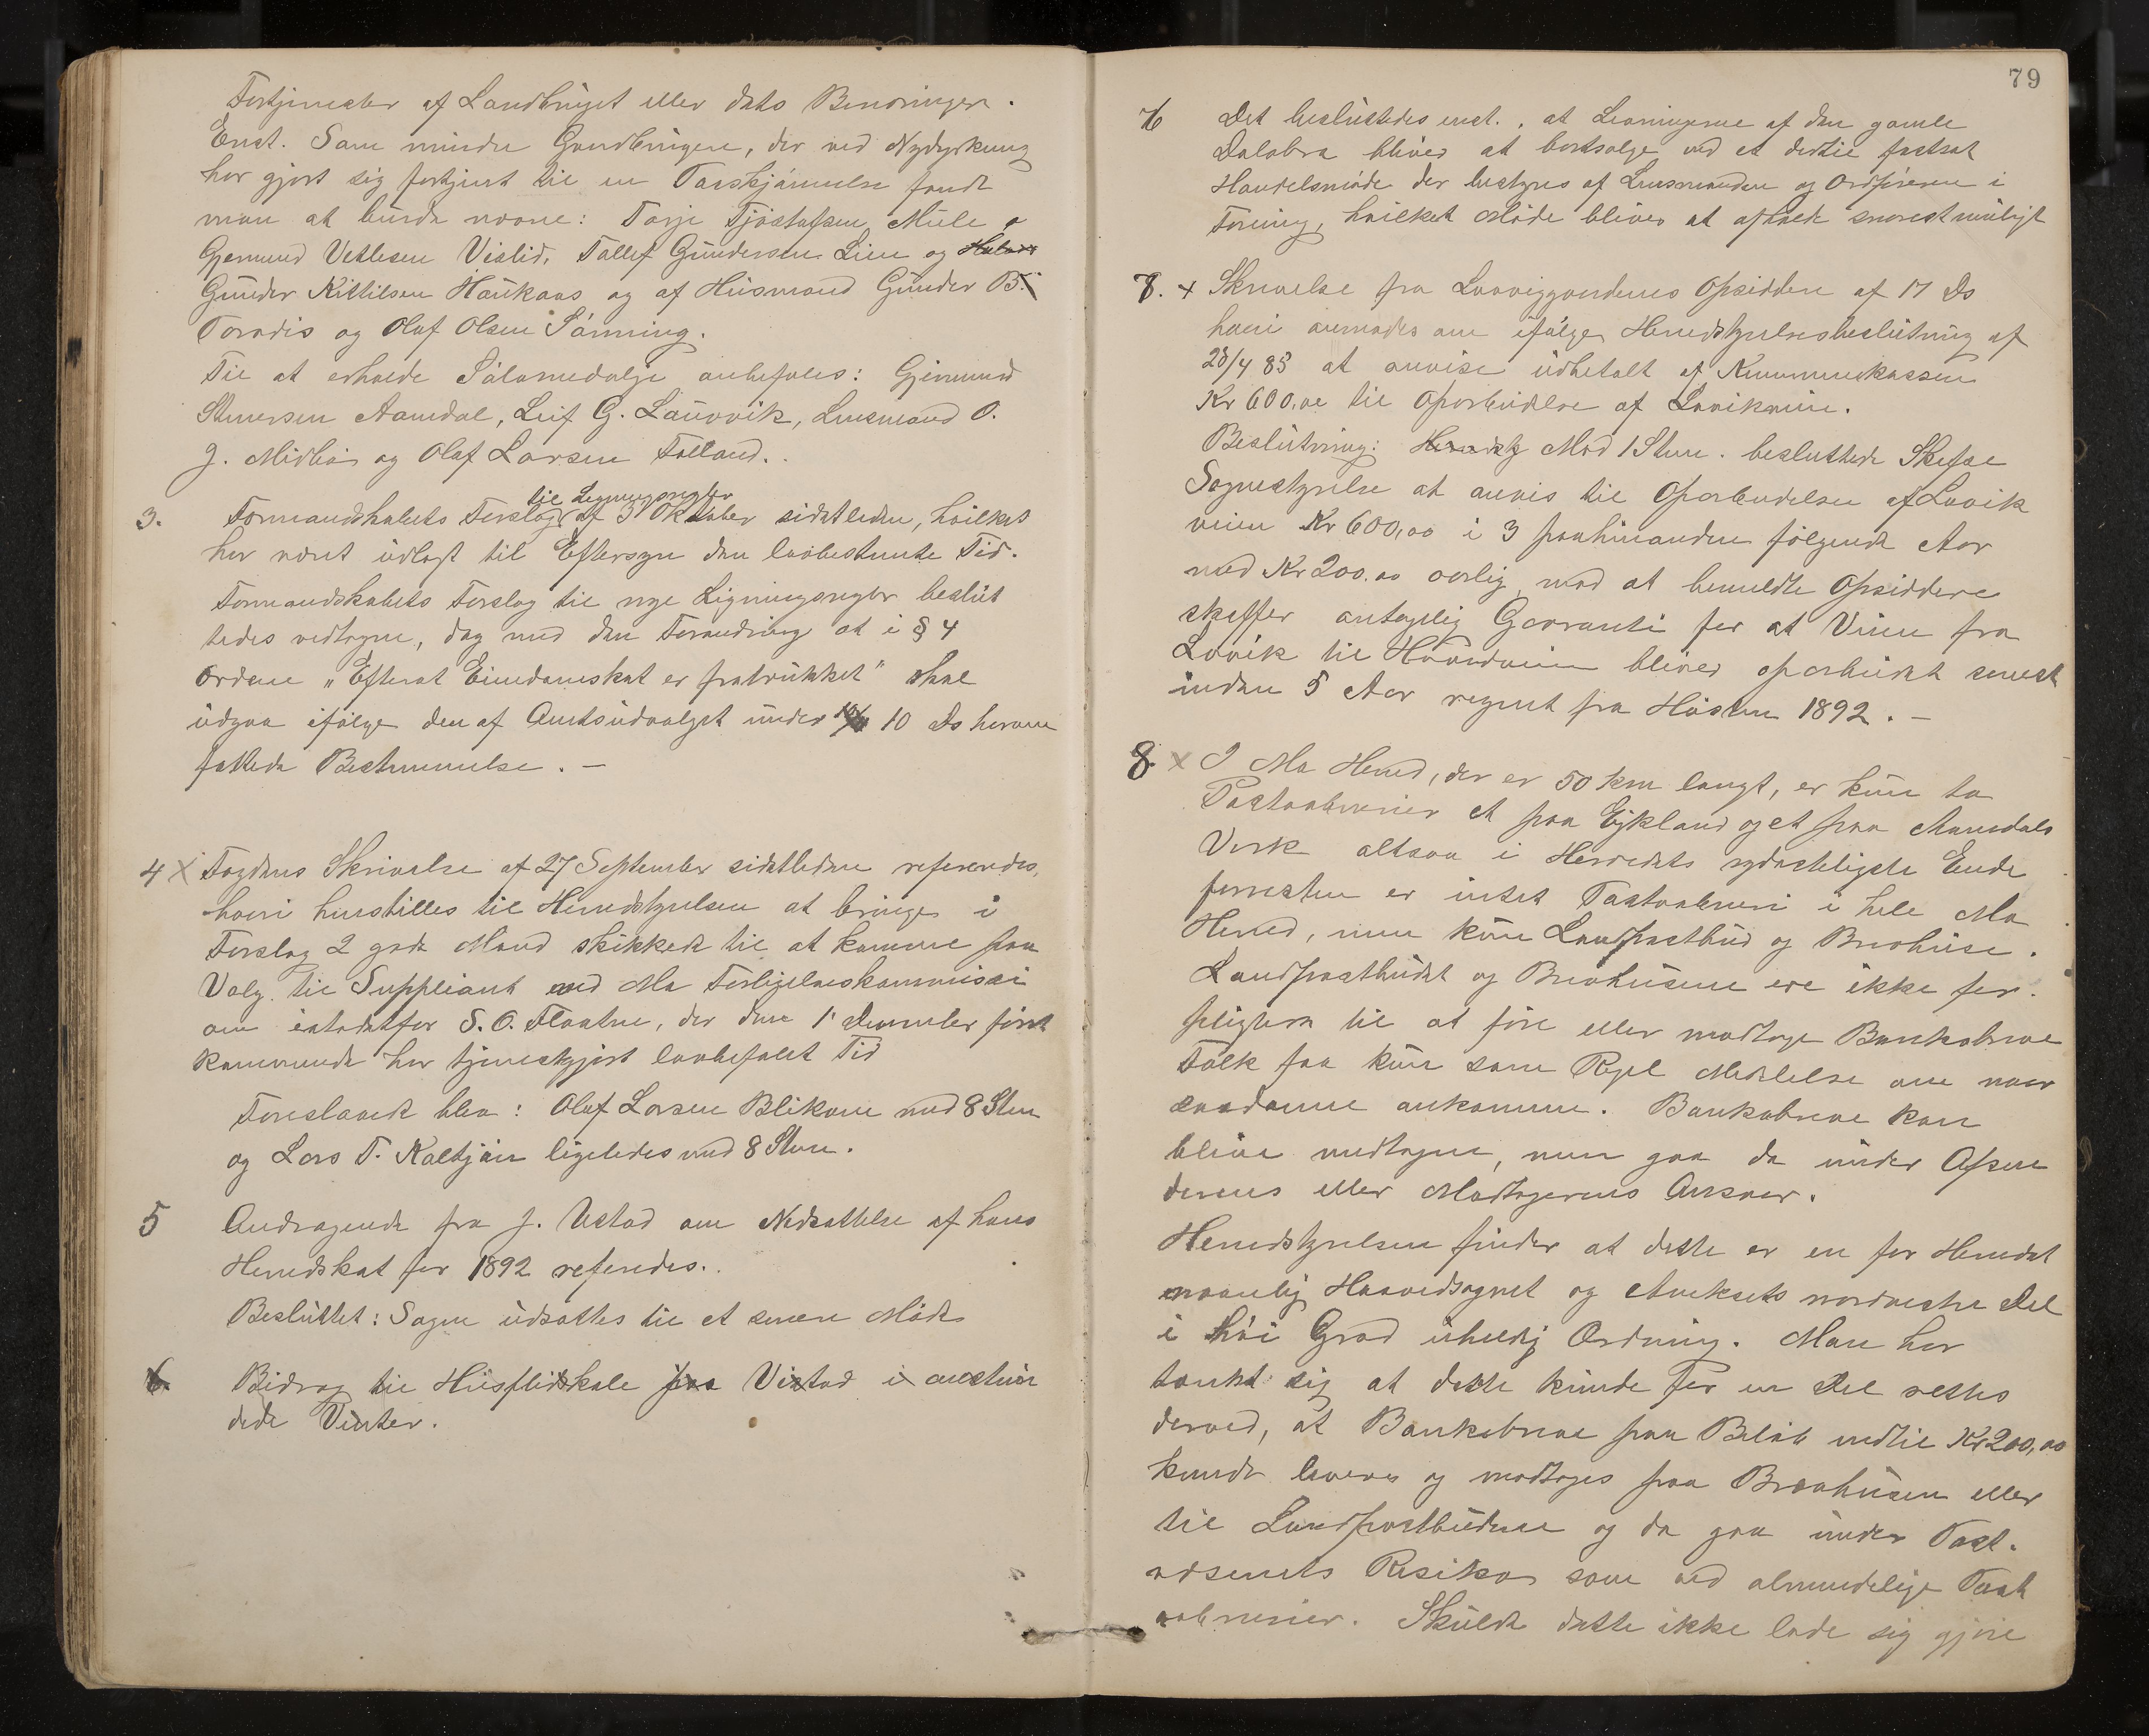 Fortjenester af Landbruget eller dets Binæringer.
Enst. Som mindre Gaardbrugere, der ved Nydyrkning
har gjort sig fortjent til en Paaskjønnelse fandt
man at burde nævne: Tarje Tjøstofsen Mule,
Gjermund Vetlesen Vislid, Tallef Gundersen Lien og
Gunder Kittilsen Haukaas og af Husmænd Gunder B.
Paradis og Olaf Olsen Sønning.
Til at erholde Sølvmedalje anbefales: Gjermund
Stenersen Aamdal, Leif G. Lauvvik, Lensmand O.
J. Midbø og Olaf Larsen Folland.
3. Formandskabets Forslag til Ligningsregler af 31 Oktober sidstleden, hvilket
har været udlagt til Eftersyn den lovbestemte Tid.
Formandskabets Forslag til nye Ligningsregler beslut
tedes vedtagne, dog med den Forandring at i § 4
Ordene „Efterat Eiendomskat er fratrukket" skal
udgaa ifølge den af Amtsudvalget under 10 ds herom
fattede Bestemmelse. –
4 X Fogdens Skrivelse af 27 September sidstledne refereredes,
hvori henstilles til Herredstyrelsen at bringe i
Forslag 2 gode Mænd skikkede til at komme paa
Valg til Suppleant ved Mo Forligelseskommissi
on istedetfor S. O. Flaatne, der den 1' December først
kommende har tjenestgjort lovbefalet Tid
Foreslaaede blev: Olaf Larsen Blikom med 8 Stem
og Lars T. Kaltjørn ligeledes med 8 Stem.
5 Andragende fra J. Ustad om Nedsættelse af hans
Herredskat for 1892 referedes.
Besluttet: Sagen udsættes til et senere Møde
6 Bidrag til Husflidskole paa Vistad i anstun
dede Vinter.
79
7 Det besluttedes enst., at Levningerne af den gamle
Dalabro bliver at bortsælge ved et dertil fastsat
Handelsmøde der bestyres af Lensmanden og Ordføreren i
Forening, hvilket Møde bliver at afholde snarest muligt
8. x Skrivelse fra Lavviggaardenes Opsiddere af 17 ds
hvori anmodes om ifølge Herredstyrelsesbeslutning af
28/4 85 at anvise udbetalt af Kommunekassen
Kr 600,oo til Oparbeidelse af Lavikveien.
Beslutning: Mod 1 Stem. besluttede Skafse
Sognestyrelse at anvis til Oparbeidelse af Lavik
veien Kr 600,oo i 3 paahinanden følgende Aar
med Kr 200.oo aarlig mod at bemeldte Opsiddere
skaffer antagelig Garanti for at Veien fra
Lavik til Hovedveien bliver oparbeidet senest
inden 5 Aar regnet fra Høsten 1892. –
8. x I Mo Herred, der er 50 km langt, er kun to
Postaabnerier et paa Eikland og et paa Aamdals
Verk altsaa i Herredets sydøstligste Ende
forresten er intet Postaabneri i hele Mo
Herred, men kun Landpostbud og Brevhuse.
Landpostbudet og Brevhusene ere ikke for-
pligtede til at føre eller modtage Bankobreve
Folk faa kun som Regel Meddelelse om naar
saadanne ankomme. Bankobreve kan
blive modtagne, men gaa da under Afsen
derens eller Modtagerens Ansvar.
Herredstyrelsen finder at dette er en for Herredet
navnlig Hovedsognet og Anneksets nordvestre Del
i høi Grad uheldig Ordning. Man har
tænkt sig at dette kunde for en Del rettes
derved, at Bankobreve paa Beløb indtil Kr 200,oo
kunde leveres og modtages paa Brevhusen eller
til Landpostbudene og da gaa under Post-
væsenets Risiko som ved almindelige Post
aabnerier. Skulde dette ikke lade sig gjøre